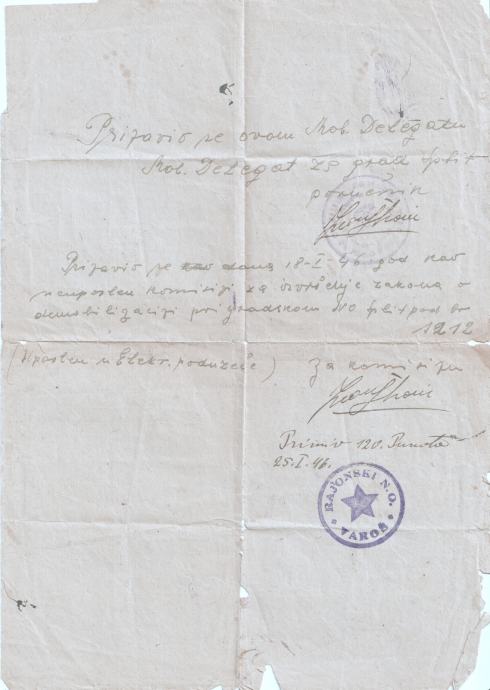 Prijavio se ovom Mob. Delegatu
Mob. Delegat za grad Split
poručnik
Prijavio se kao dana 18-I-46 god kao
neuposlen komisiji za izvršenje zakona o
demobilizaciji pri gradskom NO Split pod br
1212
(Uposlen u Elektr. poduzeće) Za komisiju
Primio 120. Punata
25.I.46.
RAJONSKI N.O.
VAROŠ